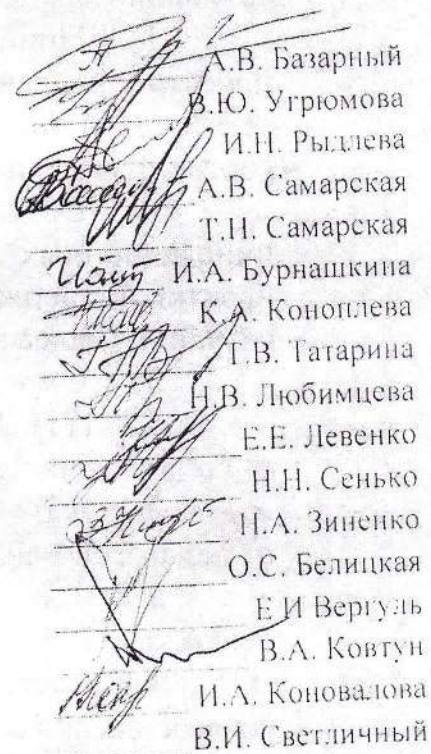 А.В. Базарный
В.Ю. Угрюмова
И.Н. Рыдлева
А.В. Самарская
Т.Н. Самарская
И.А. Бурнашкина
К.А. Коноплева
Т.В. Татарина
Н.В. Любимцева
Е.Е. Левенко
Н.Н. Сенько
Н.А. Зиненко
О.С. Белицкая
Е.И Вергуль
В.А. Ковтун
И.А. Коновалова
В.И. Светличный